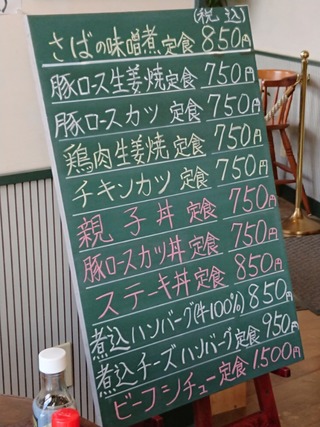 (税込)
さばの味噌煮定食 850円
豚ロース生姜焼定食 750円
豚ロースカツ 定食 750円
鶏肉生姜焼定食 750円
チキンカツ 定食 750円
親子丼 定食 750円
豚ロースカツ丼定食 750円
ステーキ丼 定食 850円
煮込ハンバーグ(牛100%) 850円
煮込チーズハンバーグ定食 950円
ビーフシチュー定食 1,500円